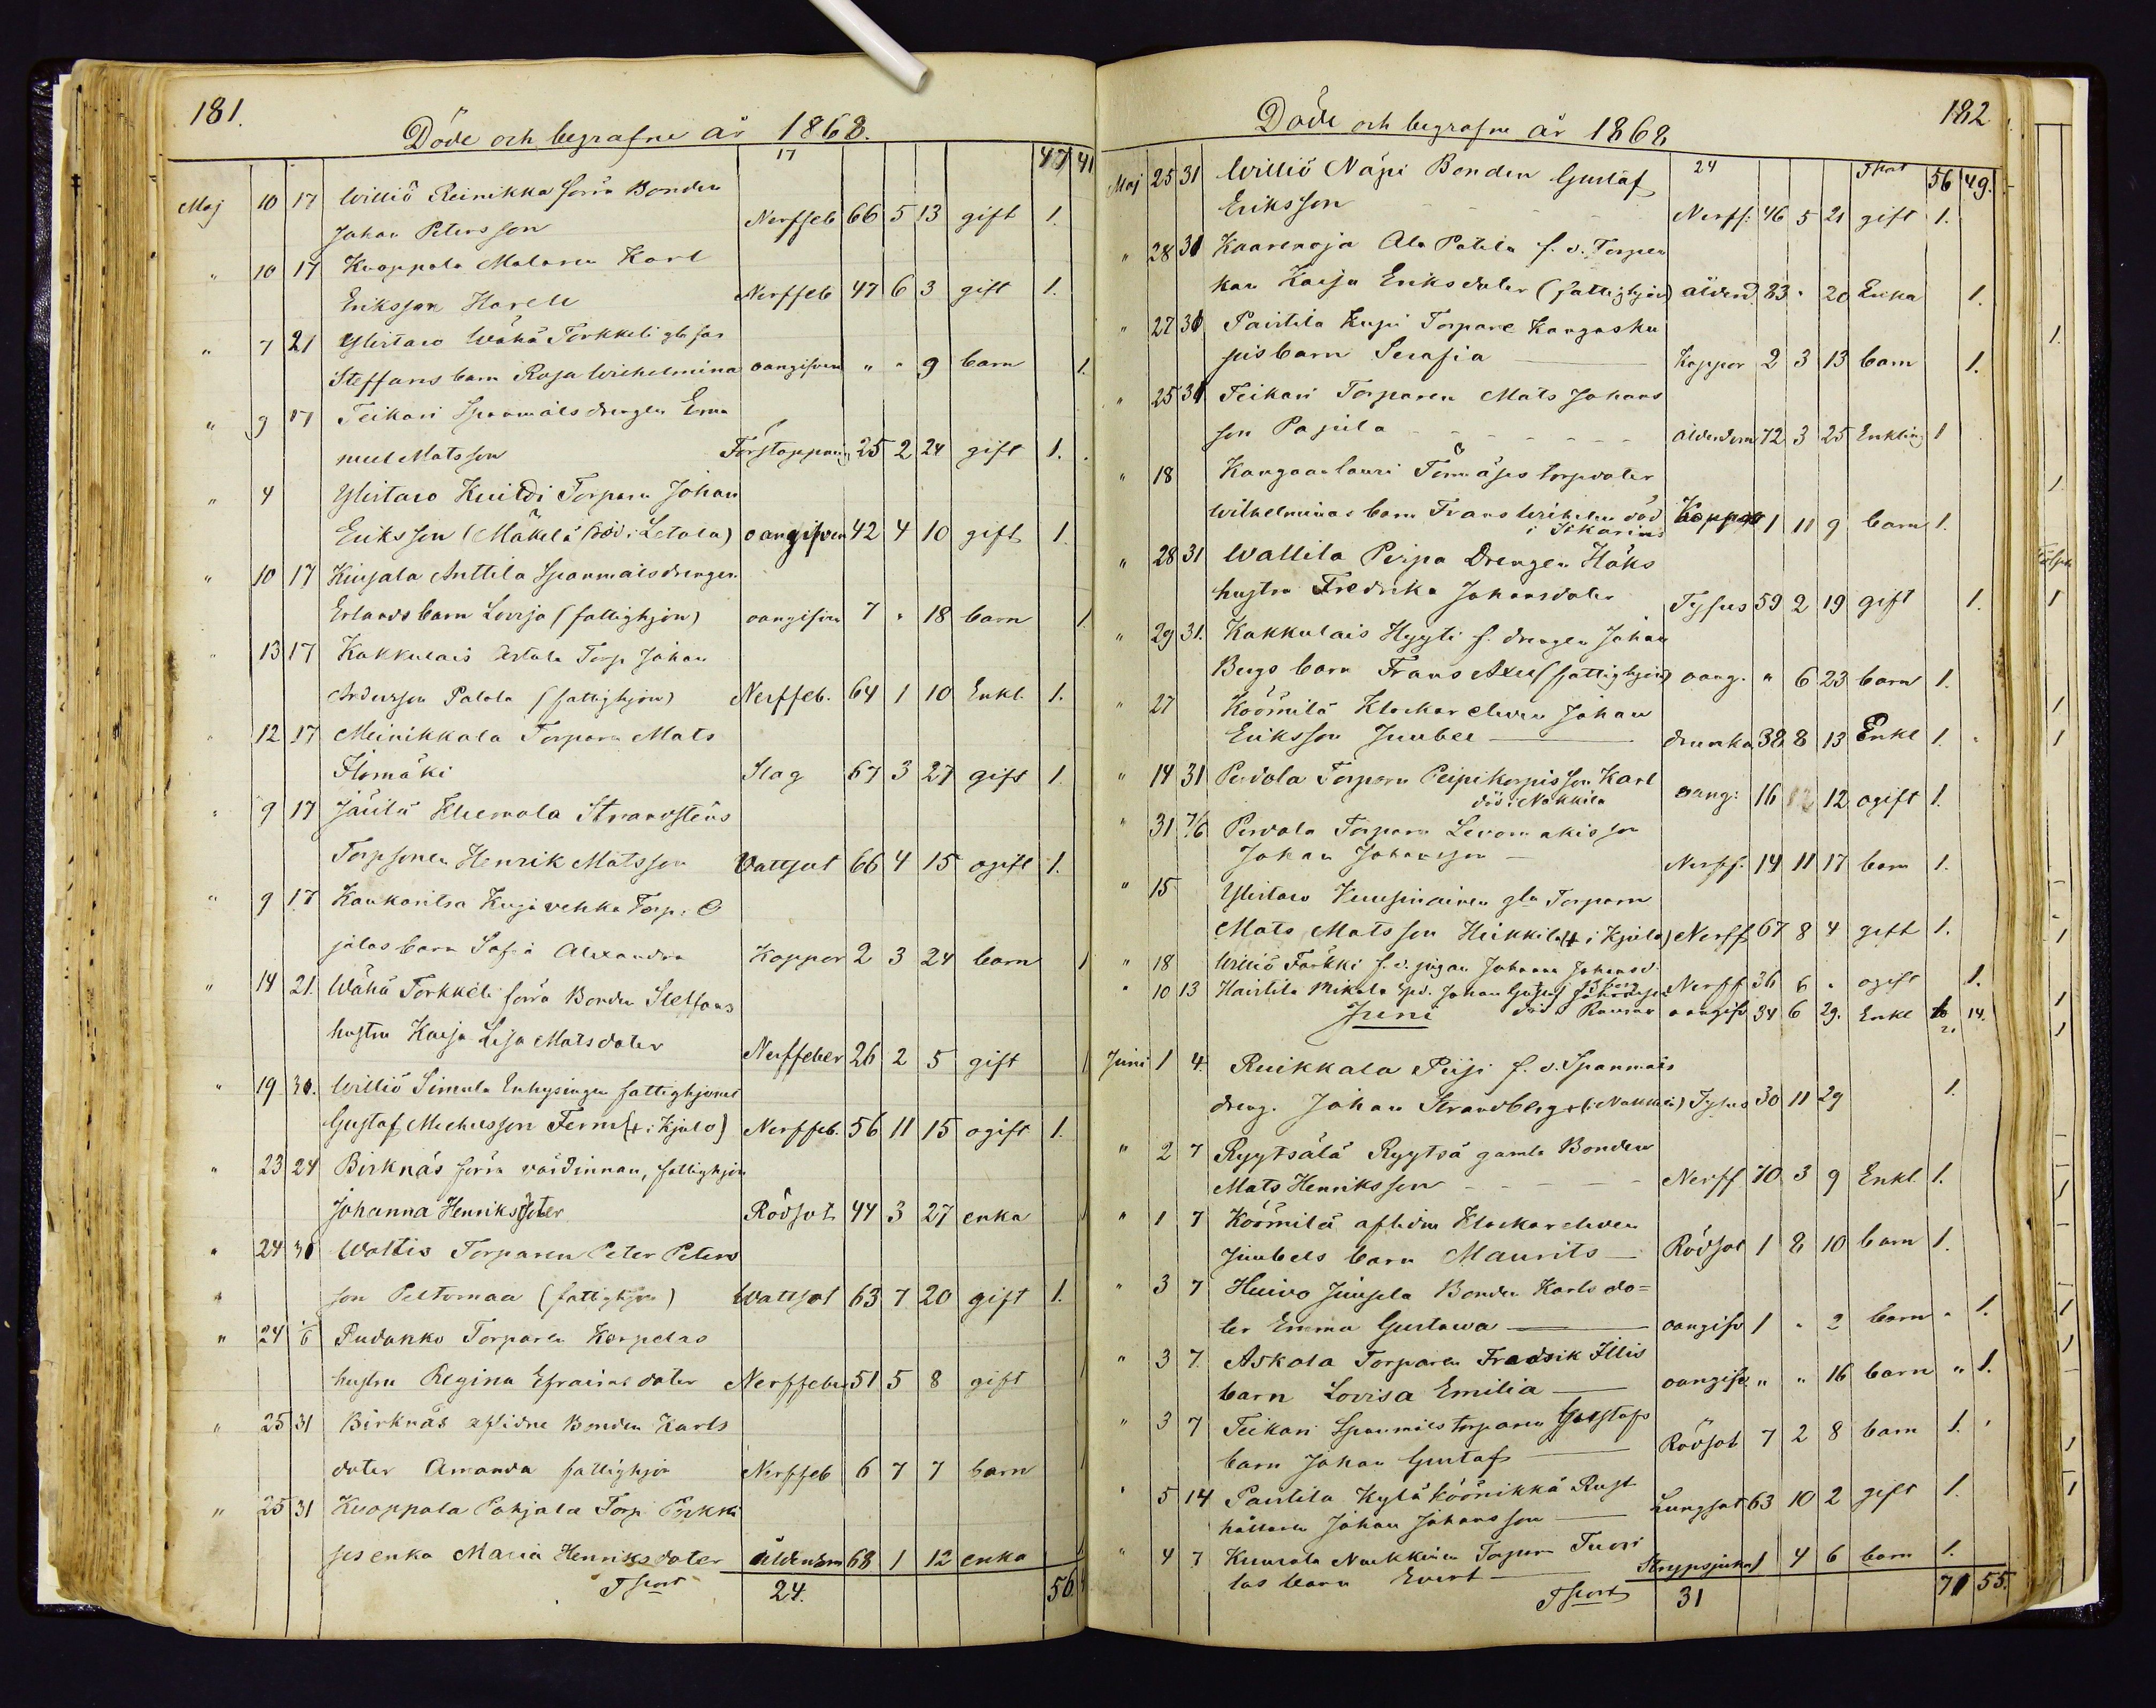 181.
Döde och begrafne år 1868.
17 47 41
Maj 10 17 Williö Reinikka förra Bonden
Johan Petersson Nerffeb 66 5 13 gift 1.
" 10 17 Kuoppala Malaren Karl
Eriksson Harell Nerffeb 47 6 3 gift 1.
" 7 21 Ylistaro Wähä Torkkeli gla far
Steffans barn Rosa Wilhelmina oangifven " " 9 barn 1.
" 9 17 Teikari Spanmålsdrengen Ema
nuel Matsson Förstoppning 25 2 24 gift 1.
" 4 Ylistaro Kuitdi Torparen Johan
Eriksson (Mäkelä död i Letala) oangifven 42 4 10 gift 1.
" 10 17 Kiusala Anttila Spanmålsdrengen
Erlands barn Lovisa (fattighjon) oangifven 7 " 18 barn 1
" 13 17 Kakkulais Torp Johan
Andersson Palola (fattighjon) Nerffeb. 64 1 10 Enkl. 1.
" 12 17 Meinikkala Torparen Mats
Ilomäki Slag 67 3 27 gift 1.
" 9 17 Jäülä Strandstens
Torpsonen Henrik Matsson Vattsot 66 4 15 ogift 1.
" 9 17 Kaukaritsa Torp: O
jalas barn Sofia Alexandra Koppor 2 3 24 barn 1
" 14 21. Wähä Torkkeli förra Bonden Steffans
hustru Kaisa Lisa Matsdoter Nerffeber 26 2 5 gift 1
" 19 30. Williö Simula Enhysingen fattighjonet
Gustaf Michelsson Ferm (+ i Kjulo) Nerffeb. 56 11 15 ogift 1.
" 23 24 Birknäs förra värdinnan, fattighjon
Johanna Henriksdoter Rödsot 44 3 27 enka
" 24 30 Wattis Torparen Peter Peters
" son Peltomaa (fattighjon) Wattsot 63 7 20 gift 1.
" 24 1/6 Pudanko Torparen Korpelas
hustru Regina Efraimsdoter Nerffeber 51 5 8 gift 1
" 25 31 Birknäs aflidne Bonden Karls
doter Amanda fattighjon Nerffeb 6 7 7 barn 1
" 25 31 Kuoppala Pohjala Torp: Pirkki
ses enka Maria Henriksdoter ålderdom 68 1 12 enka 1
Tsport 24. 56
Döde och begrafne år 1868
182.
24 Tsport 56 49.
Maj 25 31 Williö Näpi Bonden Gustaf
Eriksson Nerff. 46 5 21 gift 1.
" 28 31 Kaarenoja Ala Pätila f. d. Torpen
kan Kaisa Eriksdoter (fattighjon) ålderd. 83 " 20 Enka 1.
" 27 31 Pairtila Kupi Torpare Kangasku
pis barn Serafia Koppor 2 3 13 barn 1.
" 25 31 Teikari Torparen Mats Johans
son Pajula ålderdom 72 3 25 Enkling 1
" 18 Kangaanlauri Tommases torpdoter
Wilhelminas barn Frans Wilhelm död
i S:t Karins Koppor 1 11 9 barn 1.
" 28 31 Wallila Peipa Drengen Höks
hustru Fredrika Johansdoter Tyfus 59 2 19 gift 1.
" 29 31. Kakkulais Hyyti f. drengen Johan
Bergs barn Frans Axel (fattighjon) oang. " 6 23 barn 1.
" 27 Köömilä Klockar eleven Johan
Eriksson Juubel drunkn 38 8 13 Enkl 1.
" 14 31 Perdola Torparen Peipikorpis son Karl
död i Nakkila oang: 16 12 12 ogift 1.
" 31 7/6 Perdola Torparen Levomäkis son
Johan Johansson Nerff. 14 11 17 barn 1.
" 15 Ylistaro Kuusinainen gla Torparen
Mats Matsson Heikkilä (+ i Kjula) Nerff 67 8 4 gift 1.
" 18 Williö Tarkki f. d. pigan Johanna Johansd. Nerff 36 6 " ogift 1.
" 10 13 Hairtila Mikola spd. Johan Gustaf Johansson
död i Raumo oangif 34 6 29. Enkl 14.
Juni
Juni 1 4. Ruikkala Piiji f. d. Spanmåls
dreng. Johan Strandberg + (i Nakkila) Tyfus 30 11 29 1.
" 2 7 Ryytsälä Ryytsä gamla Bonden
Mats Henriksson Nerff 70 3 9 Enkl. 1.
" 1 7 Köömilä aflidne Klockareleven
Juubels barn Maurits Rödsot 1 8 10 barn 1.
" 3 7 Huivo Juusela Bonden Karls do=
ter Emma Gustava oangifv 1 " 2 barn " 1.
" 3 7. Askola Torparen Fredrik Illis
barn Lovisa Emilia oangifv. " " 16 barn " 1.
" 3 7 Teikari Spanmåls torparen Gustafs
barn Johan Gustaf Rödsot 7 2 8 barn 1.
" 5 14 Pairtila Kylä Köönikkä Rust
hållaren Johan Johansson Lungsot 63 10 2 gift 1.
" 4 7 Kuurola Torparen Tuori
las barn Evert Strypsjuka 1 4 6 barn 1.
Tsport 31 71 55.